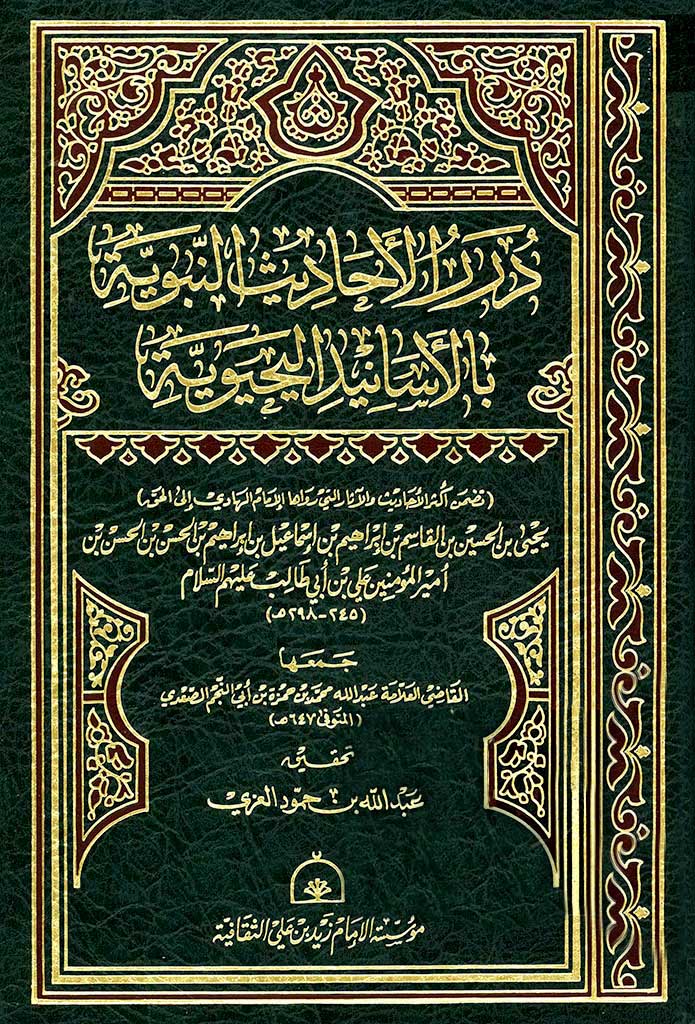 دُرَرُ الأَحَادِيثِ النَّبَوِيَّةِ
بِالأَسَانِيْدِ اليَحْيَوِيَّةِ
(تضمن أكثر الأحاديث والآثار التي رواها الإمام الهادي إلى الحق)
يحيى بن الحسين بن القاسم بن إبراهيم بن إسماعيل بن إبراهيم بن الحسن بن الحسن بن
أمير المؤمنين علي بن أبي طالب عليهم السلام
(٢٤٥-٢٩٨هـ)
جمعها
القاضي العلامة عبدالله محمد بن حمزة بن أبي النجم الصعدي
(المتوفى ٦٤٧هـ)
تحقيق
عبدالله بن حمود العزي
مؤسسة الإمام زيد بن علي الثقافية